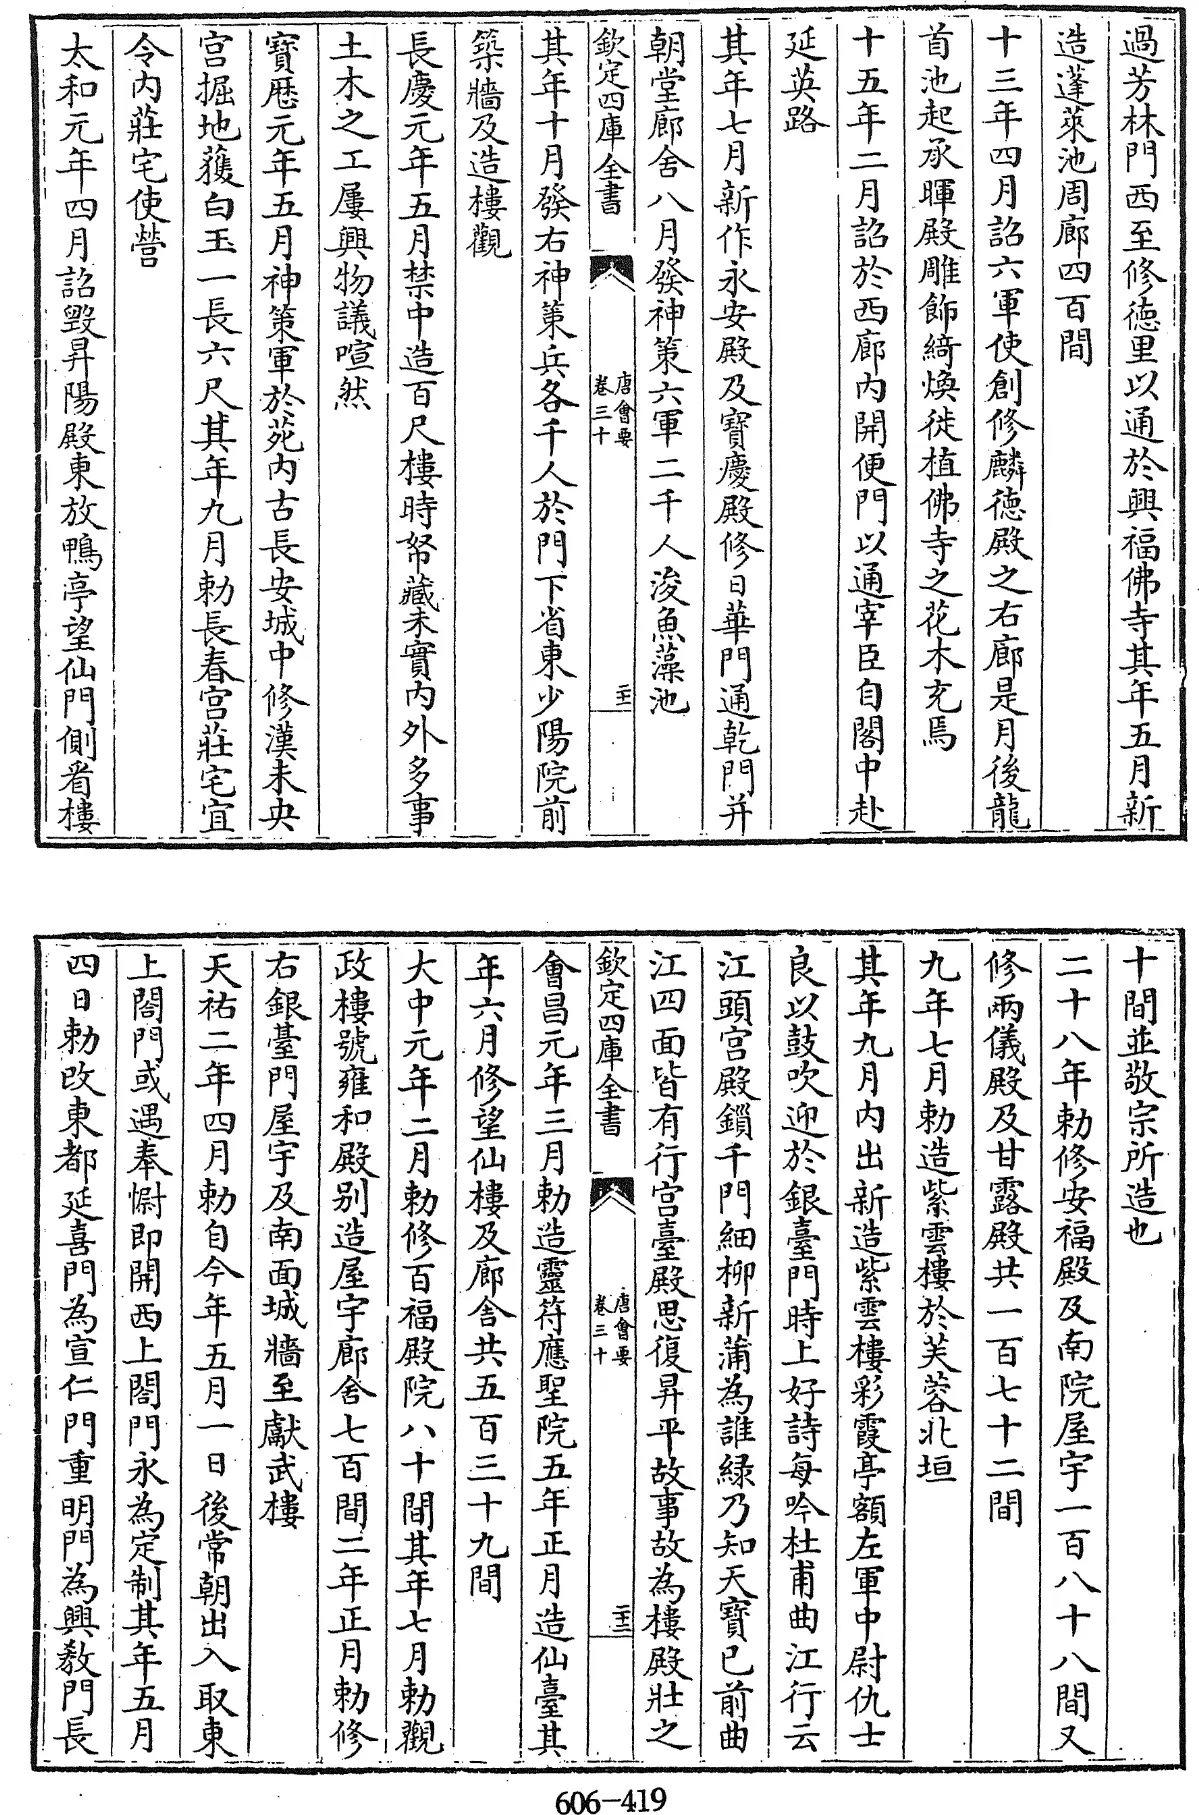 過芳林門西至修德里以通於興福佛寺其年五月新
造蓬萊池周廊四百間
十三年四月詔六軍使創修麟德殿之右廊是月後龍
首池起承暉殿雕飾綺煥徙植佛寺之花木充焉
十五年二月詔於西廊内開便門以通宰臣自閣中赴
延英路
其年七月新作永安殿及寶慶殿修日華門通乾門并
朝堂廊舍八月發神策六軍二千人浚魚藻池
欽定四庫全書
唐會要
卷三十
二十一
其年十月發右神策兵各千人於門下省東少陽院前
築牆及造樓觀
長慶元年五月禁中造百尺樓時帑藏未實内外多事
土木之工屢興物議喧然
寶歷元年五月神策軍於苑内古長安城中修漢未央
宫掘地獲白玉一長六尺其年九月勅長春宫莊宅宜
令内莊宅使營
太和元年四月詔毁昇陽殿東放鴨亭望仙門側看樓
十間並敬宗所造也
二十八年勅修安福殿及南院屋宇一百八十八間又
修兩儀殿及甘露殿共一百七十二間
九年七月勅造紫雲樓於芙蓉北垣
其年九月内出新造紫雲樓彩霞亭額左軍中尉仇士
良以鼓吹迎於銀臺門時上好詩每吟杜甫曲江行云
江頭宫殿鎖千門細柳新蒲為誰緑乃知天寶已前曲
江四面皆有行宫臺殿思復昇平故事故為樓殿壯之
欽定四庫全書
唐會要
卷三十
二十二
會昌元年三月勅造靈符應聖院五年正月造仙臺其
年六月修望仙樓及廊舍共五百三十九間
大中元年二月勅修百福殿院八十間其年七月勅觀
政樓號雍和殿别造屋宇廊舍七百間二年正月勅修
右銀臺門屋宇及南面城牆至獻武樓
天祐二年四月勅自今年五月一日後常朝出入取東
上閤門或遇奉慰即開西上閤門永為定制其年五月
四日勅改東都延喜門為宣仁門重明門為興教門長
606-419